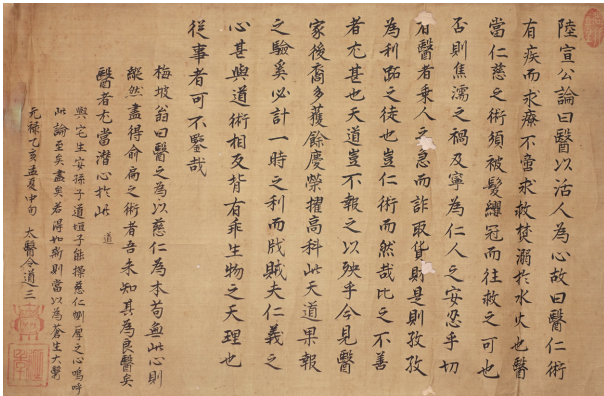 陸宣公論曰醫以活人為心故曰醫仁術
有疾而求療不啻求救焚溺於水火也醫
當仁慈之術須被髮纓冠而往救之可也
否則焦濡之禍及寧為仁人之安忍乎切
有醫者乗人之急而詐取貨財是則孜孜
為利跖之徒也豈仁術而然哉比之不善
者尤甚也天道豈不報之以殃乎今見醫
家後裔多獲餘慶榮擢髙科此天道果報
之驗奚必計一時之利而戕賊夫仁義之
心甚與道術相及背有乖生物之天理也
從事者可不鑒哉
梅坡翁曰醫之為以慈仁為本苟無此心則
縱然盡得俞扁之術者吾未知其為良醫矣
醫者尤當潛心於此
道
與它生安孫子道垣子能操慈仁惻厚之心嗚呼
此論至矣盡矣若得如斯則當以為蒼生大醫
元禄乙亥孟夏中旬 太醫令道三